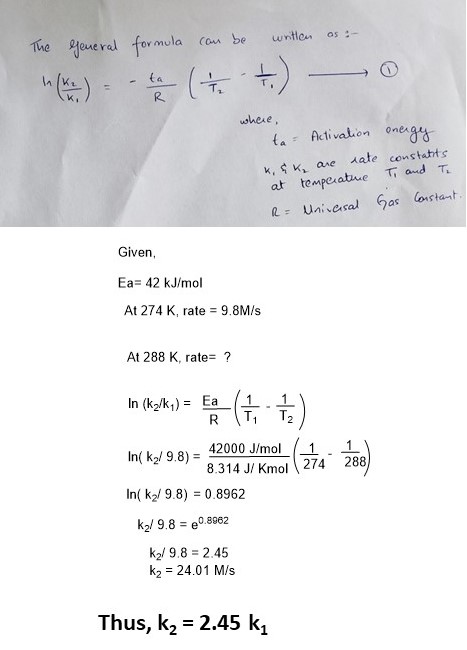 The general formula can be written as :-
ln (K₂/K₁) = - Ea/R (1/T₂ - 1/T₁) ⟶ ①
where,
Ea = Activation energy
K₁ & K₂ are rate constatits
at temperature T₁ and T₂
R = Universal Gas Constant.
Given,
Ea= 42 kJ/mol
At 274 K, rate = 9.8M/s
At 288 K, rate= ?
In (k₂/k₁) = Ea/R (1/T₁ - 1/T₂)
In( k₂/ 9.8) = 42000 J/mol / 8.314 J/ Kmol (1/274 - 1/288)
In( k₂/ 9.8) = 0.8962
k₂/ 9.8 = e^0.8962
k₂/ 9.8 = 2.45
k₂ = 24.01 M/s
Thus, k₂ = 2.45 k₁